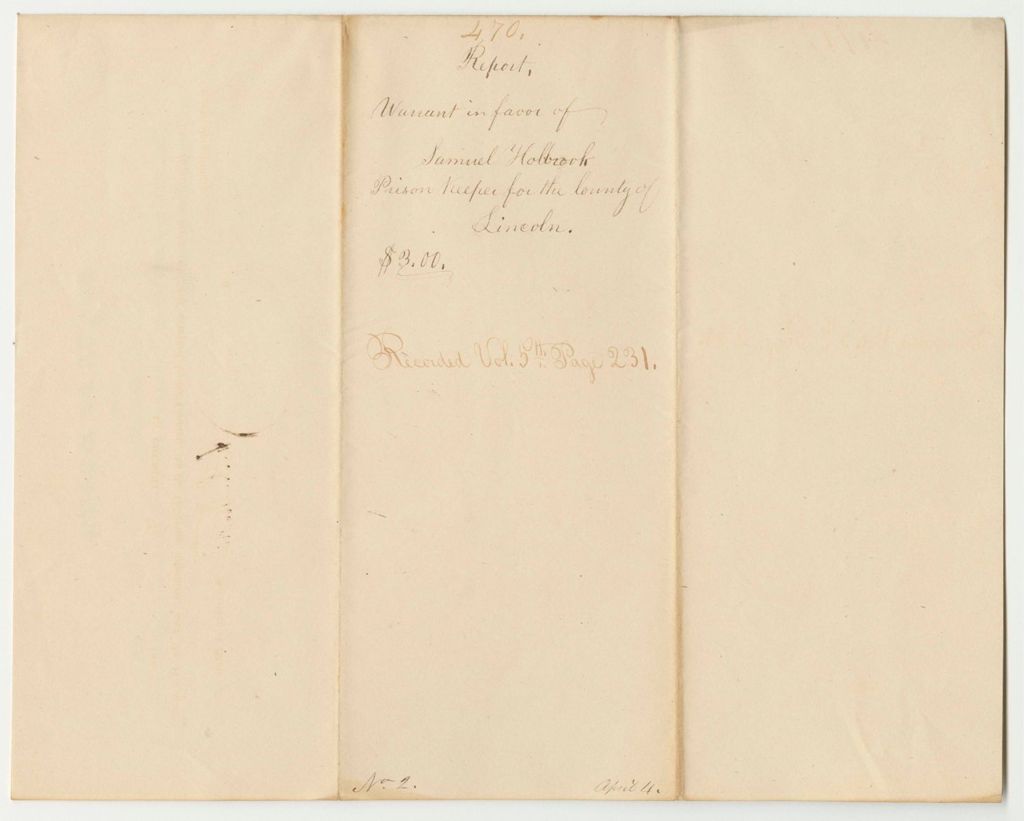 470.
Report,
Warrant in favor of
Samuel Holbrook
Prison Keeper for the County of
Lincoln.
$3.00.
Recorded Vol. 5th. Page 231.
No 2. April 4.